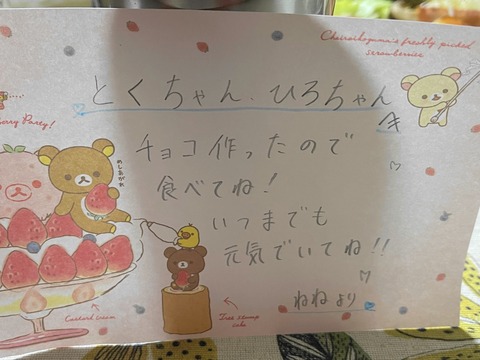 Chairoikoguma's freshly picked
strawberries
とくちゃん、ひろちゃん
へ
erry Party!
めしあがれ
チョコ作ったので
食べてね!
いつまでも
元気でいてね!!
ねねより
Custard cream
Tree stump
cake